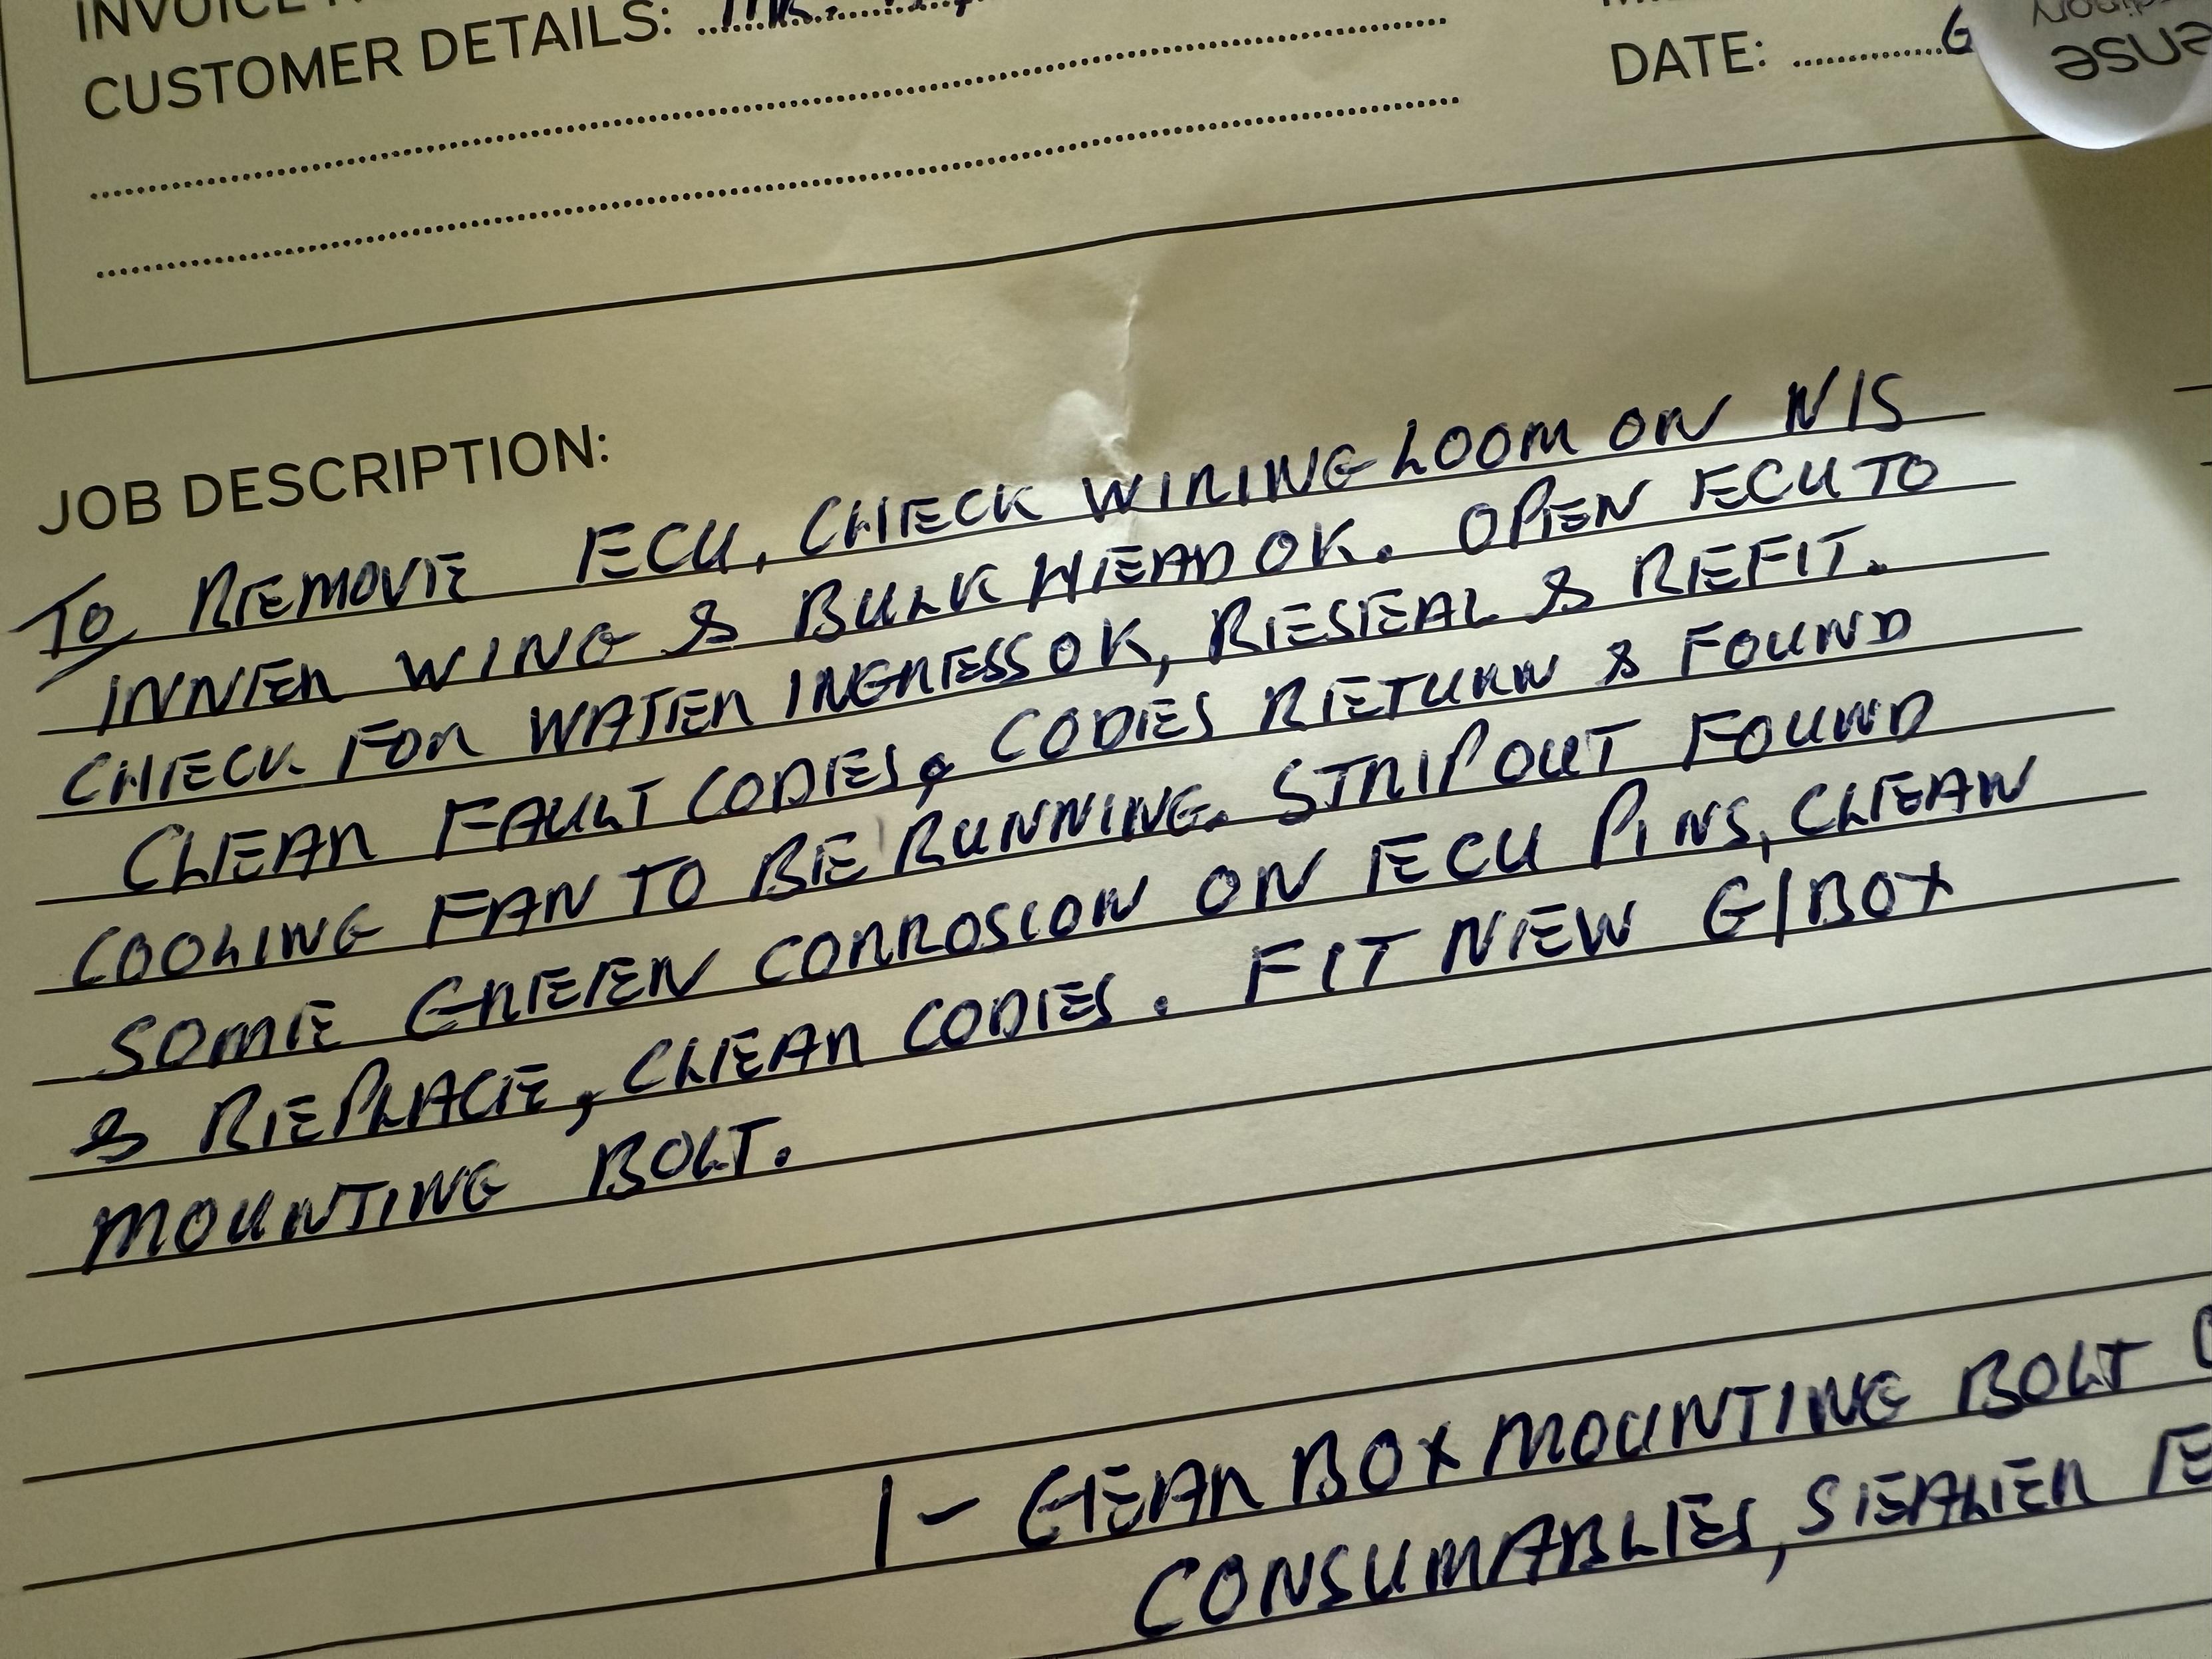 INVOICE
CUSTOMER DETAILS: MR.
DATE:
JOB DESCRIPTION:
TO REMOVE ECU, CHECK WIRING LOOM ON N/S
INNER WING & BULK HEAD OK. OPEN ECU TO
CHECK FOR WATER INGRESS OK, RESEAL & REFIT.
CLEAR FAULT CODES, CODES RETURN & FOUND
COOLING FAN TO BE RUNNING. STRIP OUT FOUND
SOME GREEN CORROSION ON ECU PINS, CLEAN
& REPLACE, CLEAR CODES. FIT NEW G/BOX
MOUNTING BOLT.
1 - GEAR BOX MOUNTING BOLT
CONSUMABLES, SEALER